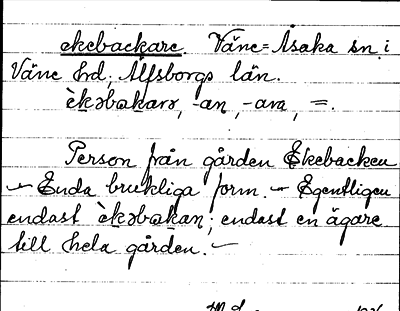 ekebackare. Väne=Åsaka sn i
Väne hrd, Älfsborgs län.
èkəbakarə, -an, -ara, =.
Person från gården Ekebacken
— Enda brukliga form. — Egentligen
endast èkəbakan; endast en ägare
till hela gården. —